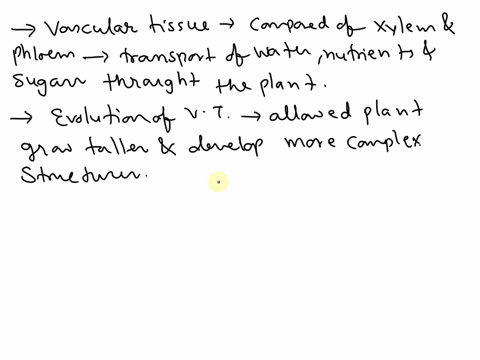 → Vascular tissue → Compared of xylem &
phloem → transport of water, nutrients &
sugar throught the plant.
→ Evolution of V.T. → allowed plant
grow taller & develop more complex
Structures.